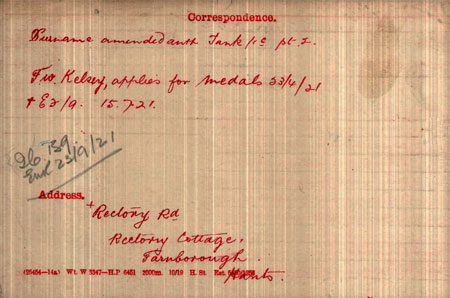 Correspondence.
Surname amended auth Tank /1c pt I.
F. W. Kelsey, applies for medals 23/4/21
+ Ex /9. 15.7.21.
26 739
End 23/9/21
Address.
+ Rectory Rd
Rectory Cottage.
Farnborough
Hants.
(25454—14a) Wt. W 5347—H.P 6451 2000m. 10/19 H. St